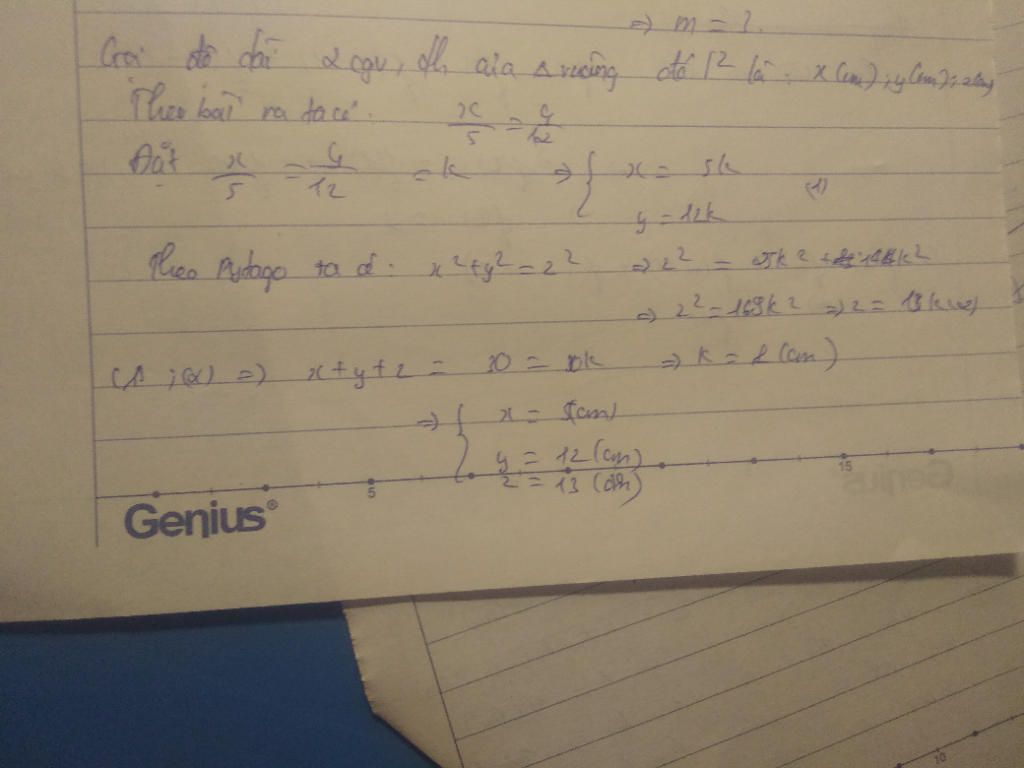 => m = 3.
Gọi độ dài 2 cgv, ch của Δ vuông đó lần lượt là: x(cm); y(cm); z(cm)
Theo bài ra ta có: x/5 = y/12
Đặt x/5 = y/12 = k => { x = 5k
y = 12k (1)
Theo Pytago ta có: x² + y² = z² => z² = 25k² + 144k²
=> z² = 169k² => z = 13k (2)
(1); (2) => x + y + z = 30 = 30k => k = 1 (cm)
=> { x = 5(cm)
y = 12 (cm)
z = 13 (cm)
5 15
Genius®
10